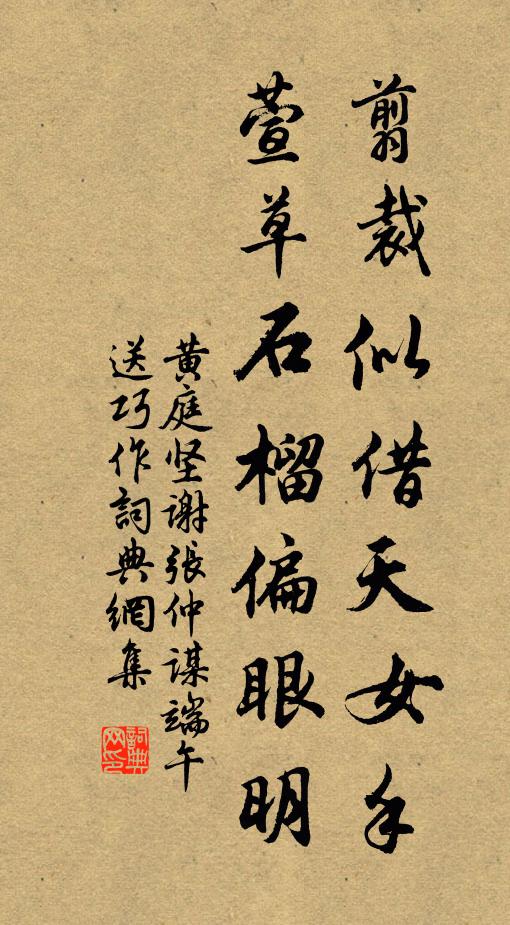 翦裁似借天女手
萱草石榴偏眼明
黄庭坚謝張仲謀端午
送巧作詞典網集
詞典网印